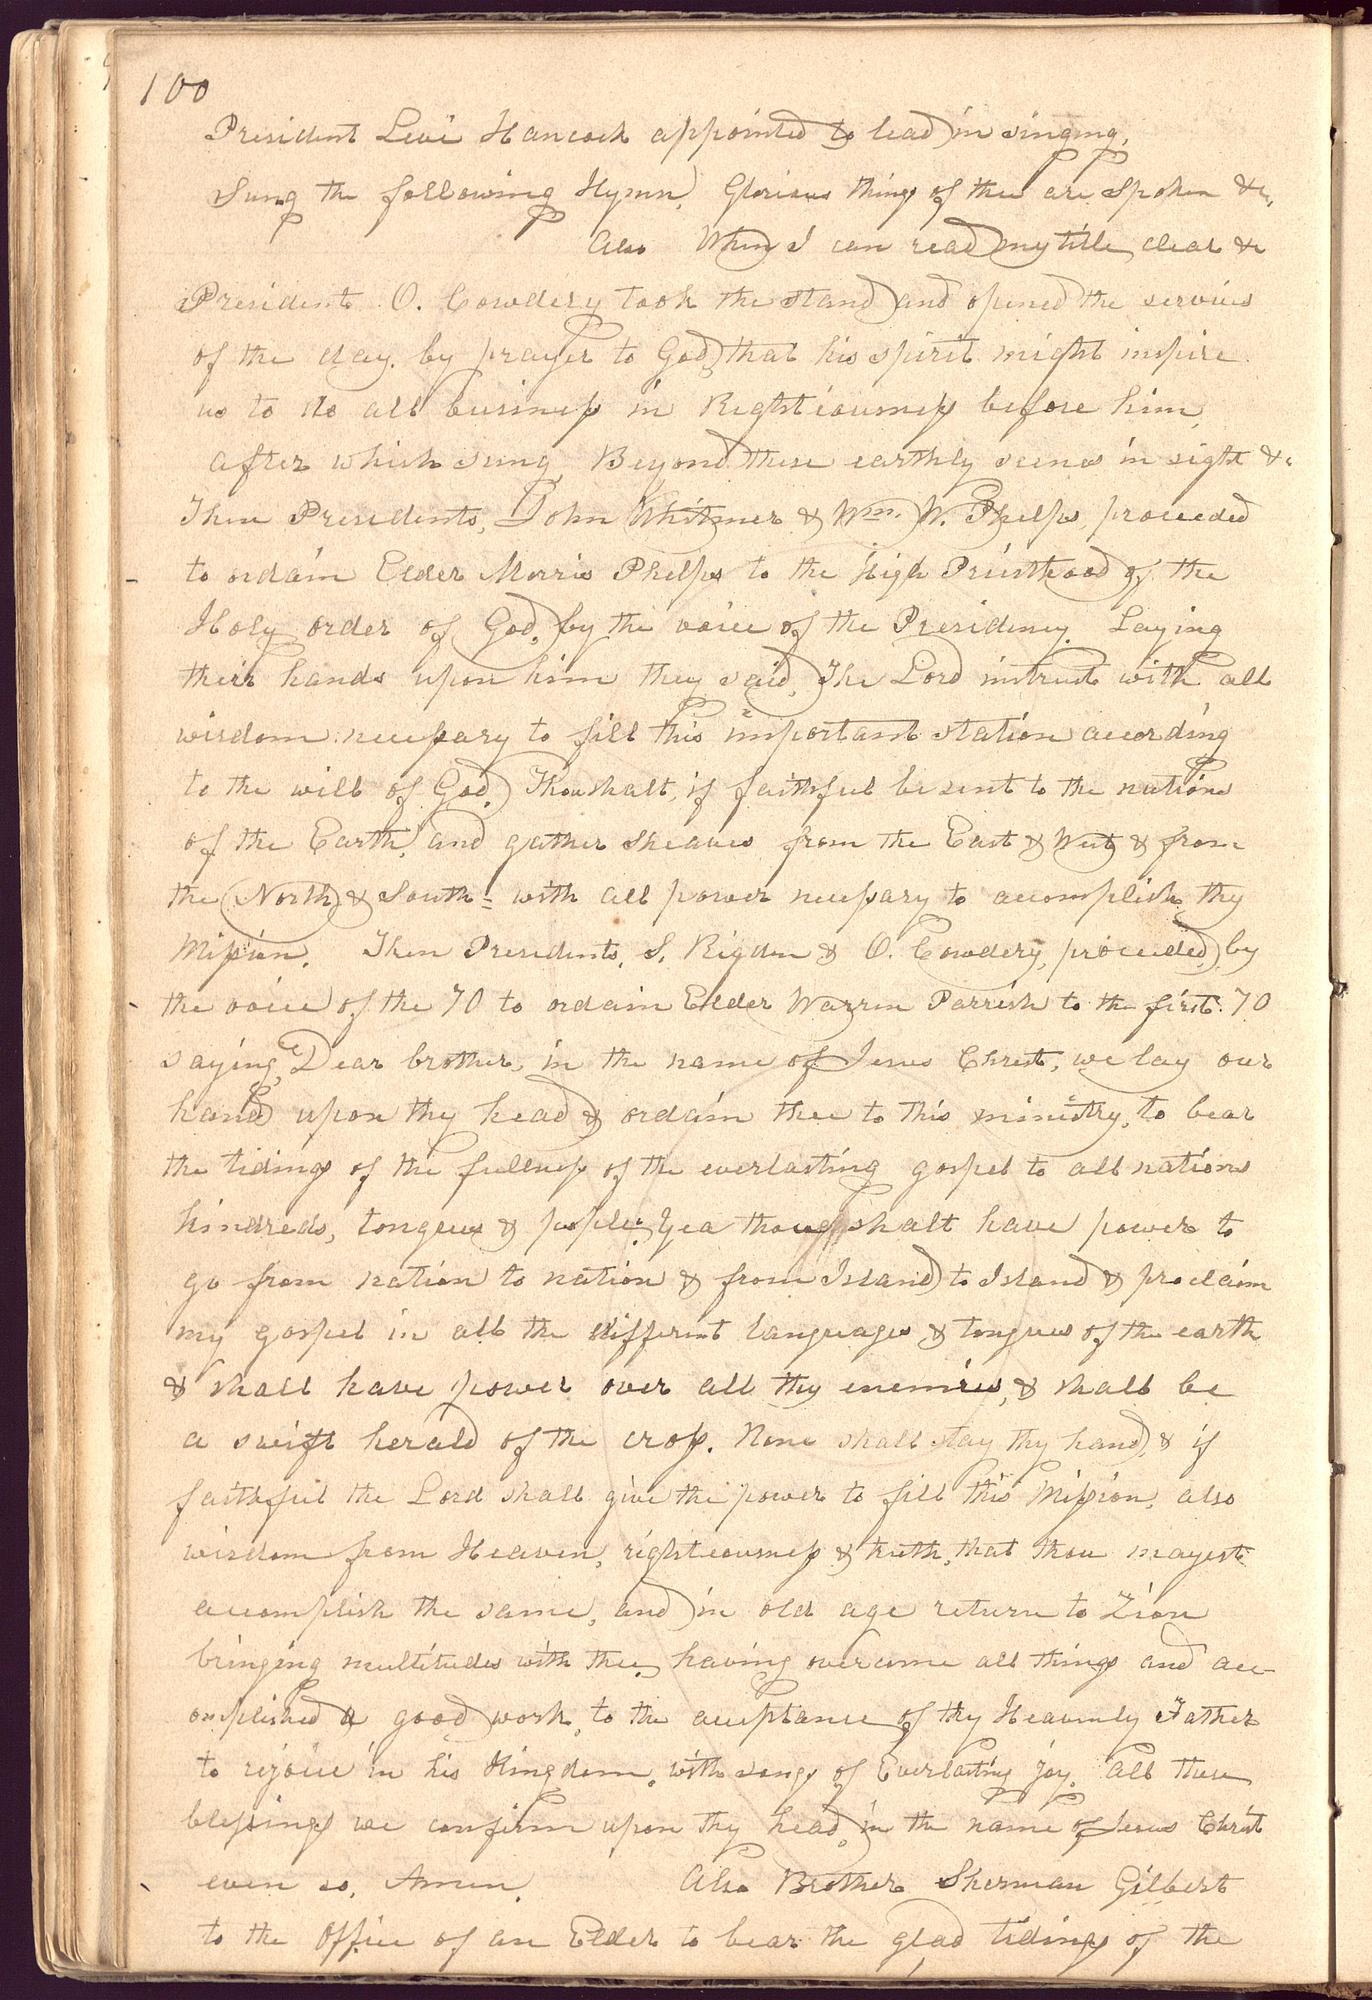 100
President Levi Hancock appointed to lead in singing,
Sung the following Hymn, Glorious things of thee are Spoken &c,
Also When I can read my title clear &c
President O. Cowdery took the stand and opened the servises
of the day. by prayer to God, that his spirit might inspire
us to do all business in Righteousness before him,
after which sung, Beyond these earthly scenes in sight &c
Then Presidents, John Whitmer & Wm. W. Phelps, proceeded
to ordain Elder Morris Phelps to the High Priesthood of the
Holy order of God, by the voice of the Presidency. Laying
their hands upon him they said, The Lord intrust with all
wisdom necessary to fill this important station according
to the will of God. Thou shalt, if faithful be sent to the nations
of the Earth, and gather sheaves from the East & West & from
the North & South - with all power necessary to accomplish thy
Mission. Then Presidents, S. Rigdon & O. Cowdery, proceeded, by
the voice of the 70 to ordain Elder Warren Parrish to the first 70
saying, Dear brother, in the name of Jesus Christ, we lay our
hands upon thy head & ordain thee to this ministry, to bear
the tidings of the fullness of the everlasting gospel to all nations
kindreds, tongues & people, Yea thou shalt have power to
go from nation to nation & from Island to Island & proclaim
my gospel in all the different languages & tongues of the earth
& shall have power over all thy enemies, & shall be
a swift herald of the cross. None shall stay thy hand, & if
faithful the Lord shall give the power to fill this Mission, also
wisdom from Heaven, righteousness & truth, that thou mayest
accomplish the same, and in old age return to Zion
bringing multitudes with thee, having overcome all things and acc-
omplished a good work, to the acceptance of thy Heavenly Father
to rejoice in his Kingdom, with songs of Everlasting joy. All these
blessings we confirm upon thy head, in the name of Jesus Christ
even so, Amen. Also Brother Sherman Gilbert
to the Office of an Elder to bear the glad tidings of the